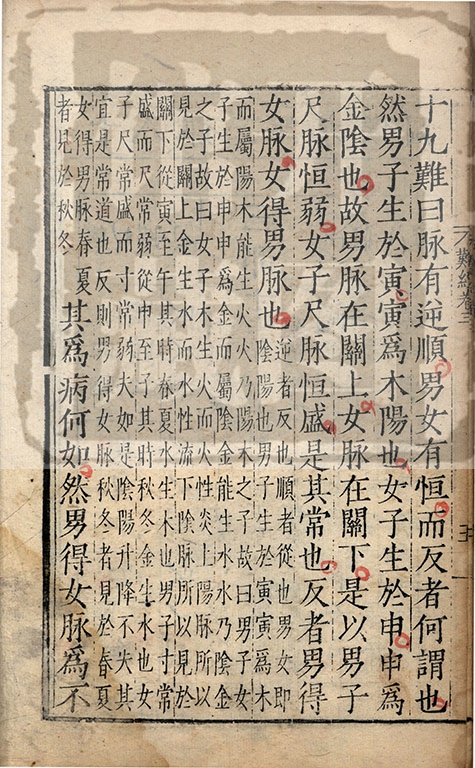 十九難曰脉有逆順男女有恒而反者何謂也
然男子生於寅寅爲木陽也女子生於申申爲
金陰也故男脉在關上女脉在關下是以男子
尺脉恒弱女子尺脉恒盛是其常也反者男得
女脉女得男脉也逆者反也順者從也男女即
陰陽也男子生於寅寅爲木
而屬陽木能生火火乃陽木之子故曰男子女
子生於申申爲金而屬陰金能生水水乃陰金
之子故曰女子木生火而火性炎上陽脉所以
見於關上金生水而水性流下陰脉所以見於
關下從寅至午其時春夏水生木也男子寸常
盛而尺常弱從申至子其時秋冬金生水也女
子尺常盛而寸常弱夫如是陰陽升降不失其
宜是常道也反則男得女脉秋冬者見於春夏
女得男脉春夏
者見於秋冬
其爲病何如然男得女脉爲不